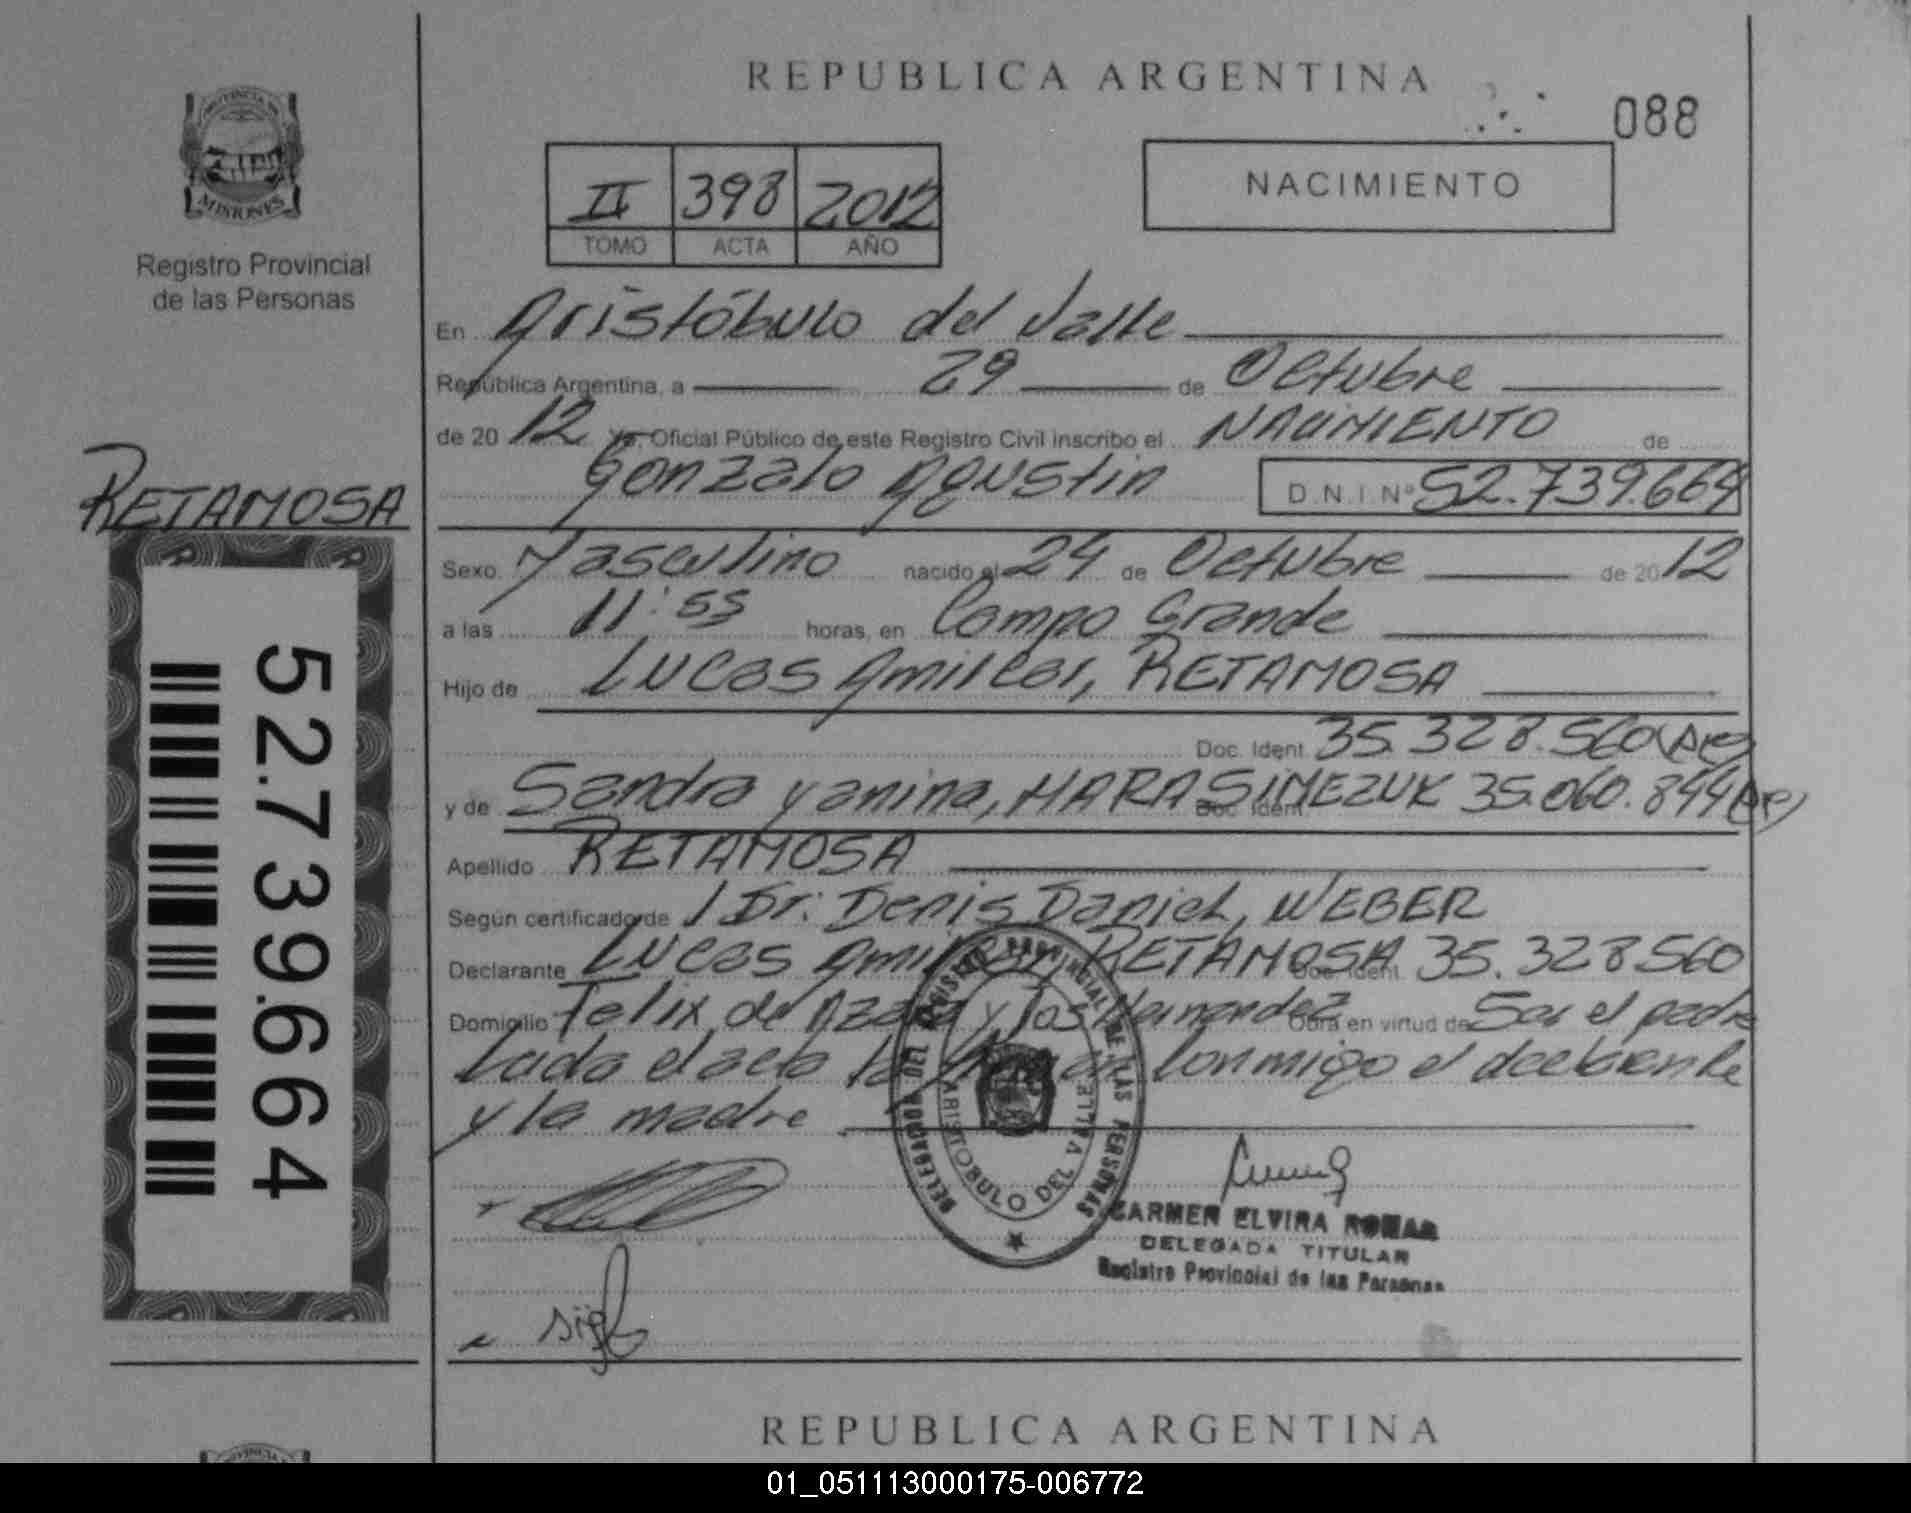 REPUBLICA ARGENTINA
088
PROVINCIA DE
MISIONES
Registro Provincial
de las Personas
II 398 2012
TOMO ACTA AÑO
NACIMIENTO
En Aristóbulo del Valle
República Argentina, a 29 de Octubre
de 20 12 Yo, Oficial Público de este Registro Civil inscribo el NACIMIENTO de
Gonzalo Agustin D.N.I Nº 52.739.664
RETAMOSA
52.739.664
Sexo. Masculino nacido el 24 de Octubre de 20 12
a las 11:55 horas, en Campo Grande
Hijo de Lucas Amilcar, RETAMOSA
Doc. Ident. 35.328.560 (Arg)
y de Sandra Yanina, HARASIMEZUK Doc. Ident. 35.060.844
Apellido RETAMOSA
Según certificado de / Dr: Denis Daniel, WEBER
Declarante Lucas Amilcar, RETAMOSA Doc. Ident. 35.328560
Domicilio Felix de Azara y Jos Hernandez Obra en virtud de Ser el padre
Leida el acta la firman Conmigo el declarante
y la madre
DELEGADOR DEL REGISTRO PROVINCIAL DE LAS PERSONAS
ARISTOBULO DEL VALLE
CARMEN ELVIRA ROMAN
DELEGADA TITULAR
Registro Provincial de las Personas
REPUBLICA ARGENTINA
PROVINCIA
01_051113000175-006772